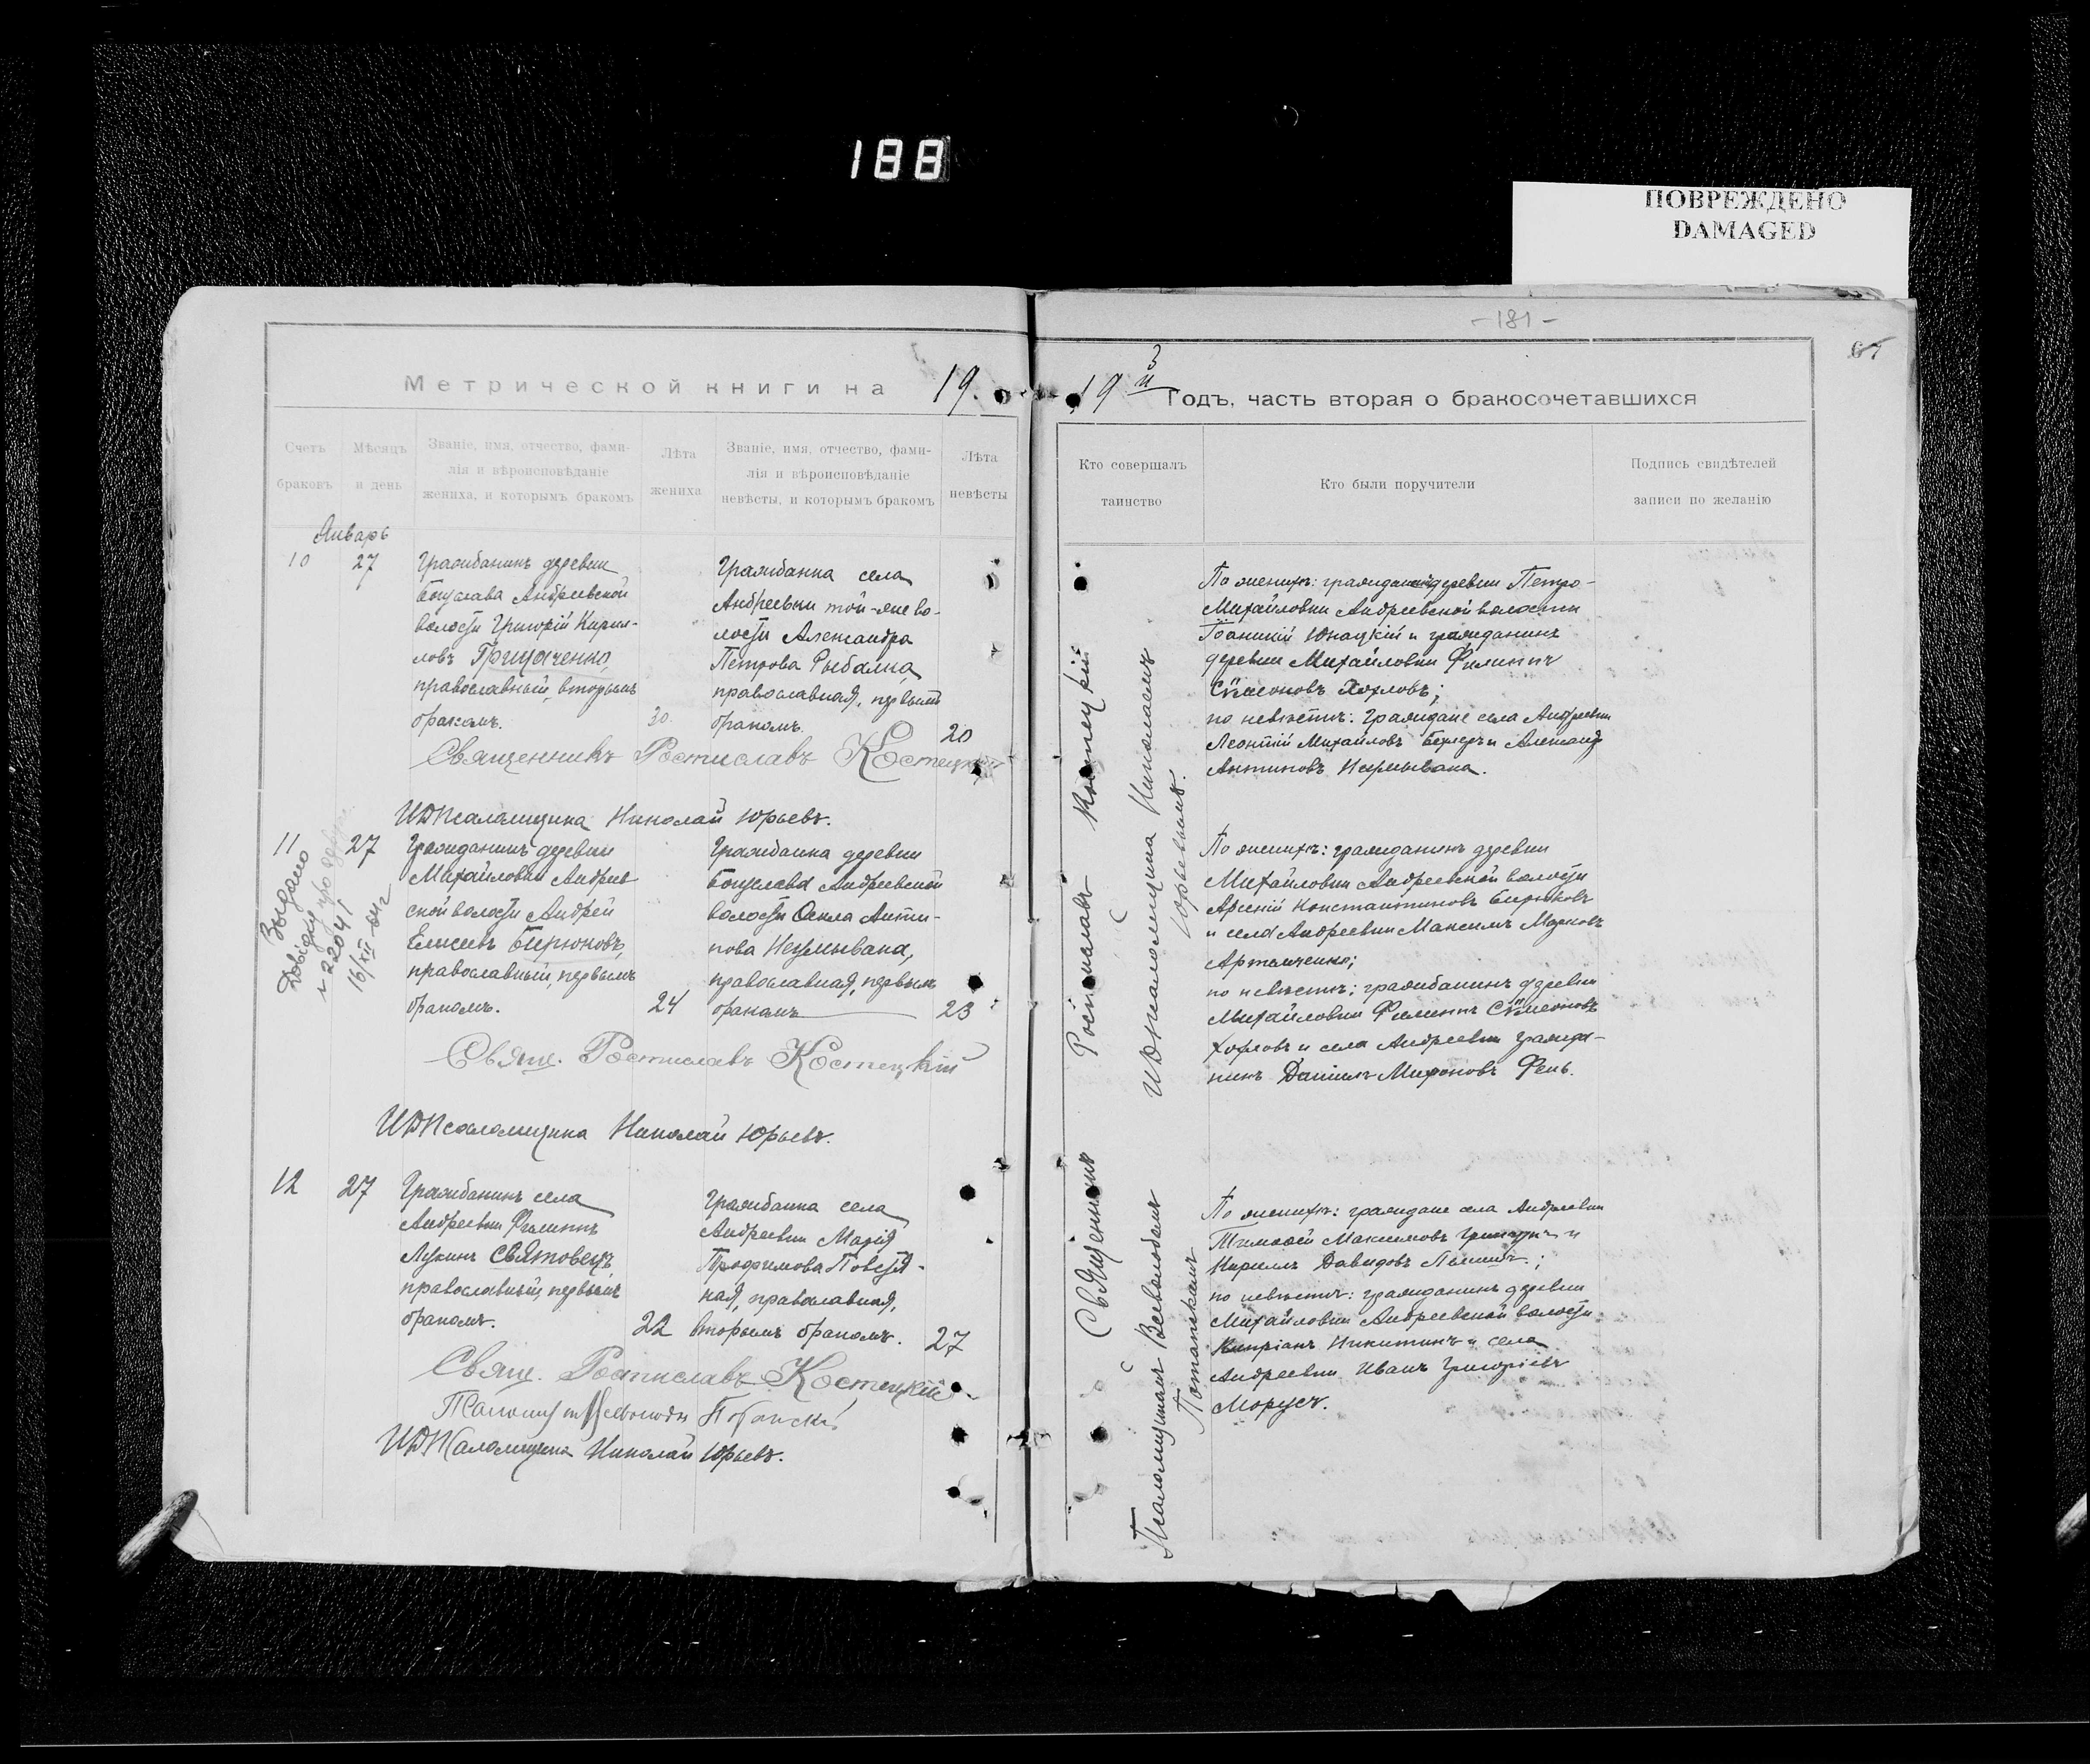 188
ПОВРЕЖДЕНО
DAMAGED
-181-
Метрической книги на 19
Счетъ браковъ
Мѣсяцъ и день
Званіе, имя, отчество, фами-
лія и вѣроисповѣданіе
жениха, и которымъ бракомъ
Лѣта жениха
Званіе, имя, отчество, фами-
лія и вѣроисповѣданіе
невѣсты, и которымъ бракомъ
Лѣта невѣсты
Январь
10
27
Гражданинъ деревни
Богуслава Андреевской
волости Григорій Кирил-
ловъ Грицаченко,
православный, вторымъ
бракомъ.
30.
Гражданка села
Андреевки той-же во-
лости Александра
Петрова Рыбалка,
православная, первымъ
бракомъ.
20
Священникъ Ростиславъ Костецкій
ИДПсаломщика Николай Юрьевъ.
11
27
Видано
Довідку про
№ 2204
16/XII
Гражданинъ деревни
Михайловки Андреев
ской волости Андрей
Елисеевъ Бирюковъ,
православный, первымъ
бракомъ.
24
Гражданка деревни
Богуслава Андреевской
волости Анти-
пова
православная, первымъ
бракомъ
23
Свящ. Ростиславъ Костецкій
ИДПсаломщика Николай Юрьевъ.
12
27
Гражданинъ села
Андреевки Филиппъ
Лукинъ Святовецъ
православный, первымъ
бракомъ.
22
Гражданка села
Андреевки Марія
Трофимова
ная, православная,
вторымъ бракомъ.
27
Свящ. Ростиславъ Костецкій
ИДПсаломщика Николай Юрьевъ.
19 годъ, часть вторая о бракосочетавшихся
Кто совершалъ
таинство
Кто были поручители
Подпись свидѣтелей
записи по желанію
Священникъ Ростиславъ Костецкій
Псаломщикомъ Всеволодомъ
Потапскимъ
ИДПсаломщика Николаемъ
Юрьевымъ.
По женихѣ: граждане деревни Петро-
Михайловки Андреевской волости
Юнацкій и гражданинъ
деревни Михайловки Филиппъ
Сѵмеоновъ Хохловъ;
по невѣстѣ: граждане села Андреевки
Леонтій Михайловъ и Александръ
Антиповъ
По женихѣ: гражданинъ деревни
Михайловки Андреевской волости
Арсеній Константиновъ Бирюковъ
и села Андреевки Максимъ Марковъ
Артемченко;
по невѣстѣ: гражданинъ деревни
Михайловки Филиппъ Сѵмеоновъ
Хохловъ и села Андреевки гражда-
нинъ Даніилъ Мироновъ Фень.
По женихѣ: граждане села Андреевки
Тимофей Максимовъ и
Кириллъ Давидовъ
по невѣстѣ: гражданинъ деревни
Михайловки Андреевской волости
Кипріанъ Никитинъ и села
Андреевки Иванъ Григоріевъ
Морусъ.